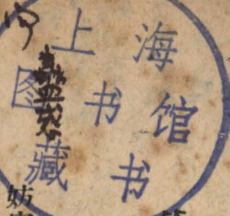 上海
图书馆
藏书
妨